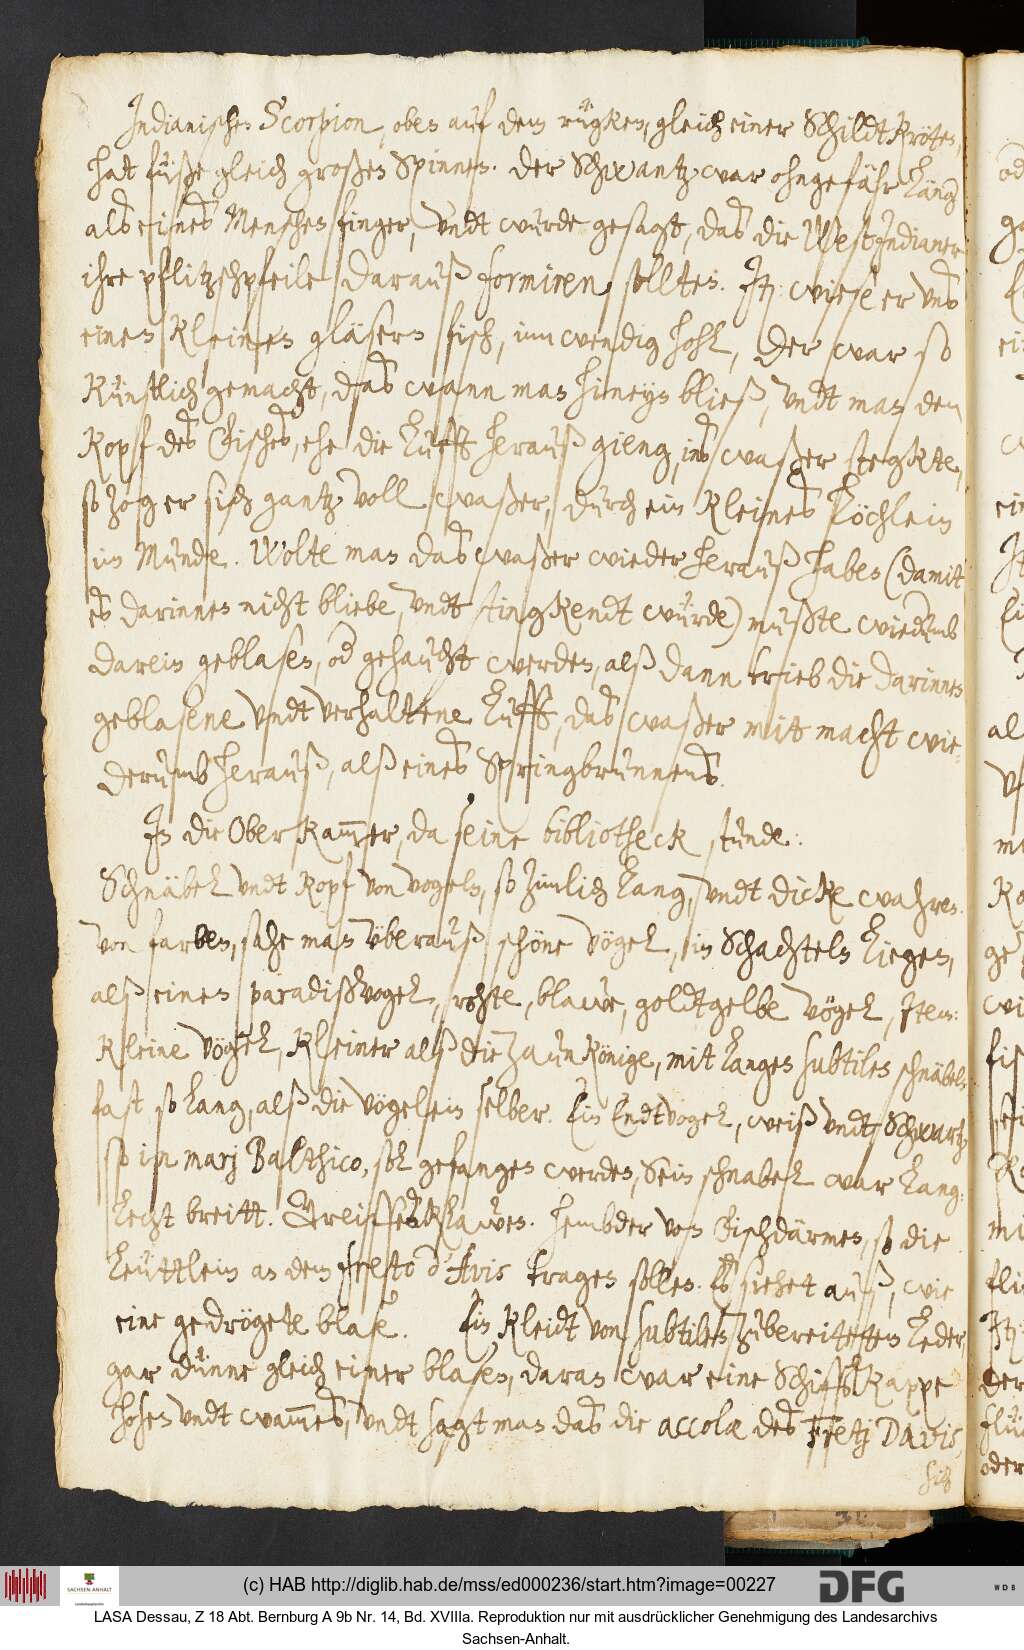 Indianischer Scorpion, oben auf dem rügken, gleich einer Schildtkröten,
hat füße gleich großen Spinnen. Der Schwantz war ohngefähr lang
als eines Menschen finger, vndt wurde gesagt, das die WestIndianer
ihre pflitzschpfeile darauß formiren sollten. It: wiese er vns
einen kleinen gläsern fisch, inwendig hohl, der war so
künstlich gemacht, das wann man hineyn bließ, vndt man den
Kopf des Fisches, ehe die Lufft herauß gieng, ins waßer stegkte,
so zog er sich gantz voll waßer, durch ein kleines Löchlein
im Munde. Wolte man das waßer wieder herauß haben (damit
es darinnen nicht bliebe, vndt stingkendt würde) mußte wiedumb
darein geblasen, od gehaucht werden, alß dann trieb die darinnen
geblasene vndt verhaltene Lufft, das waßer mit macht wie-
derumb herauß, alß eines Springbrunnens.
In der Ober Kammer, da seine bibliotheck stunde:
Schnäbel vndt Kopf von vogeln, so zimlich lang, vndt dicke wahren.
von farben, sahe man vberauß schöne vögel, in Schachteln liegen,
alß einen paradißvogel, rohte, blawe, goldtgelbe vögel, Item:
Kleine vögel, kleiner alß die Zaunkönige, mit langen subtilen schnäbeln,
fast so lang, alß die vögelein selber. Ein Endtvogel, weiß vndt Schwartz,
so im marj Balthico, sol gefangen werden, Sein schnabel war lang:
lecht breitt. Greiffen klawen. Hembder von Fischdärmen, so die
Leüttlein an dem freto d'Avis tragen sollen. Es siehet auß, wie
eine gedrögete blase. Ein Kleidt von subtilen zubereiteten Leder,
gar dünne gleich einer blasen, daran war eine Schiffskappe
hosen vndt wammes, vndt sagt man das die accolæ des Fretj Davis,
sich
(c) HAB http://diglib.hab.de/mss/ed000236/start.htm?image=00227
SACHSEN-ANHALT
DFG
WDB
LASA Dessau, Z 18 Abt. Bernburg A 9b Nr. 14, Bd. XVIIIa. Reproduktion nur mit ausdrücklicher Genehmigung des Landesarchivs
Sachsen-Anhalt.